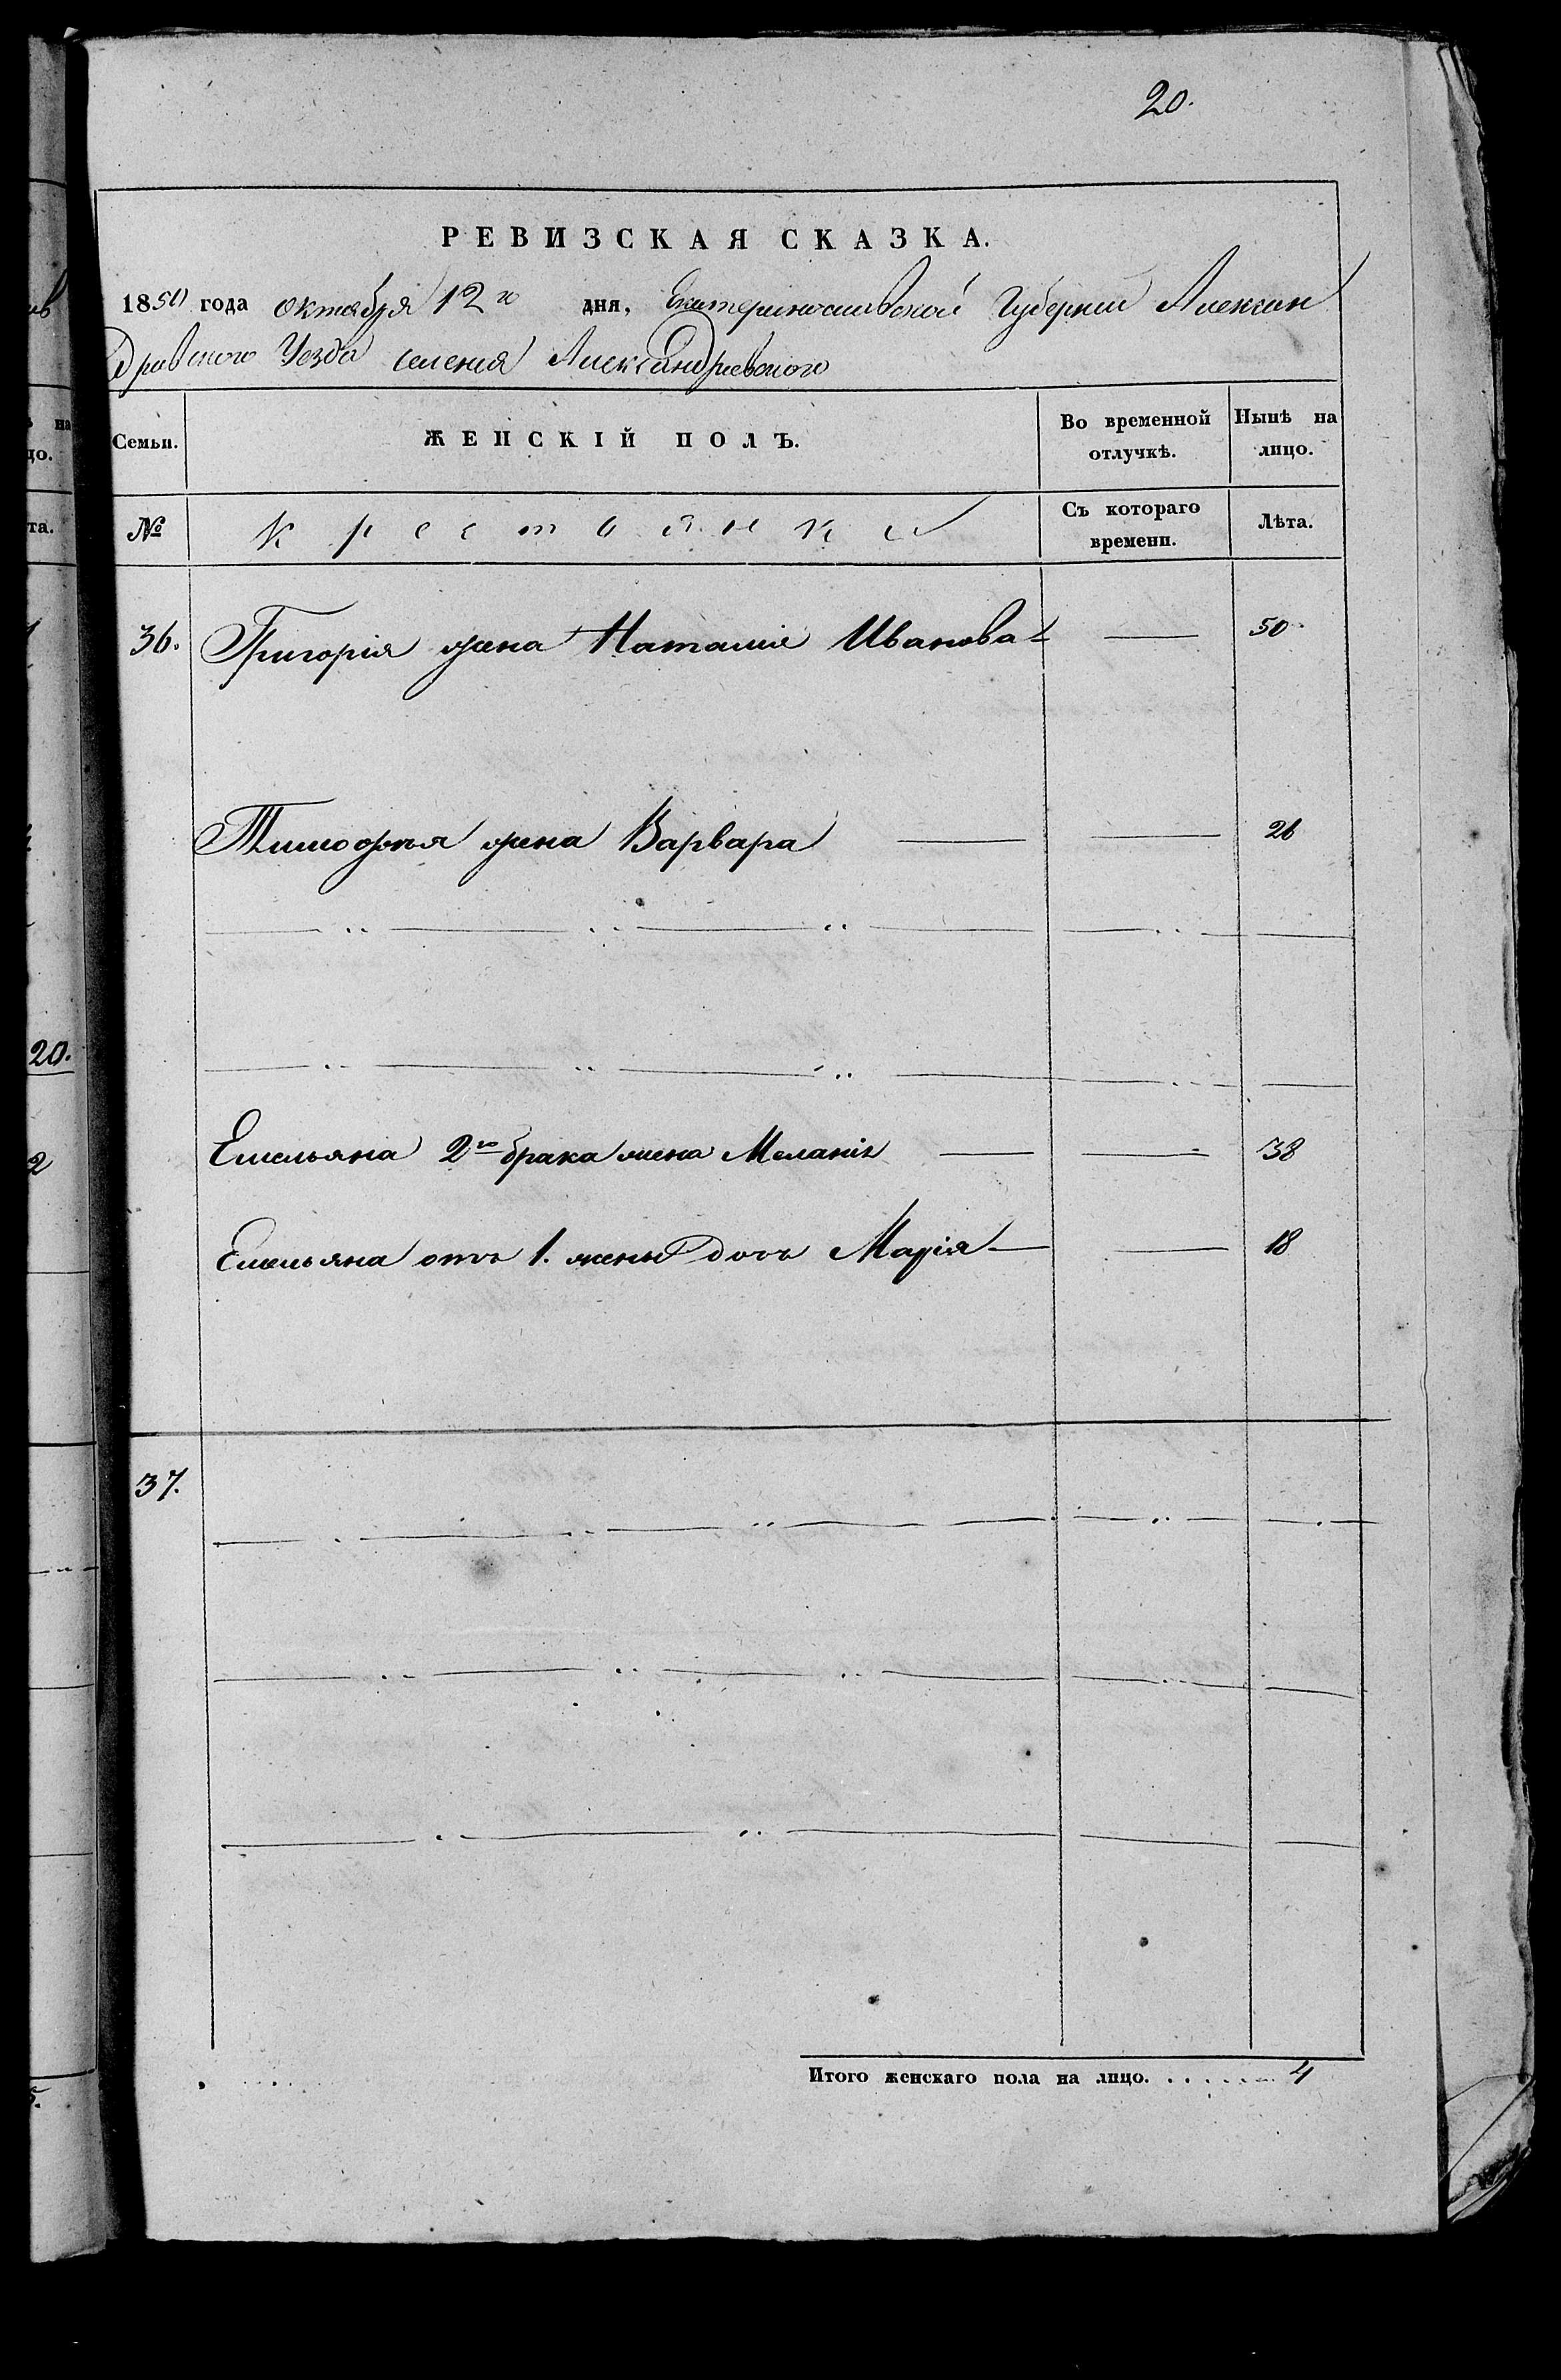 20.
РЕВИЗСКАЯ СКАЗКА.
1850 года октября 12го дня, Екатеринославской Губернии Алексан
дровского Уезда селения Александровского
Семьи. ЖЕНСКІЙ ПОЛЪ. Во временной отлучкѣ. Нынѣ на лицо.
№ Крестьянки Съ котораго времени. Лѣта.
36. Григорія жена Наталія Иванова — 50
Тимофея жена Варвара — 26
Емельяна 2го брака жена Меланія — 38
Емельяна отъ 1. жены дочь Марія — 18
37.
Итого женскаго пола на лицо. . . . . . . 4
на
цо.
та.
20.
2